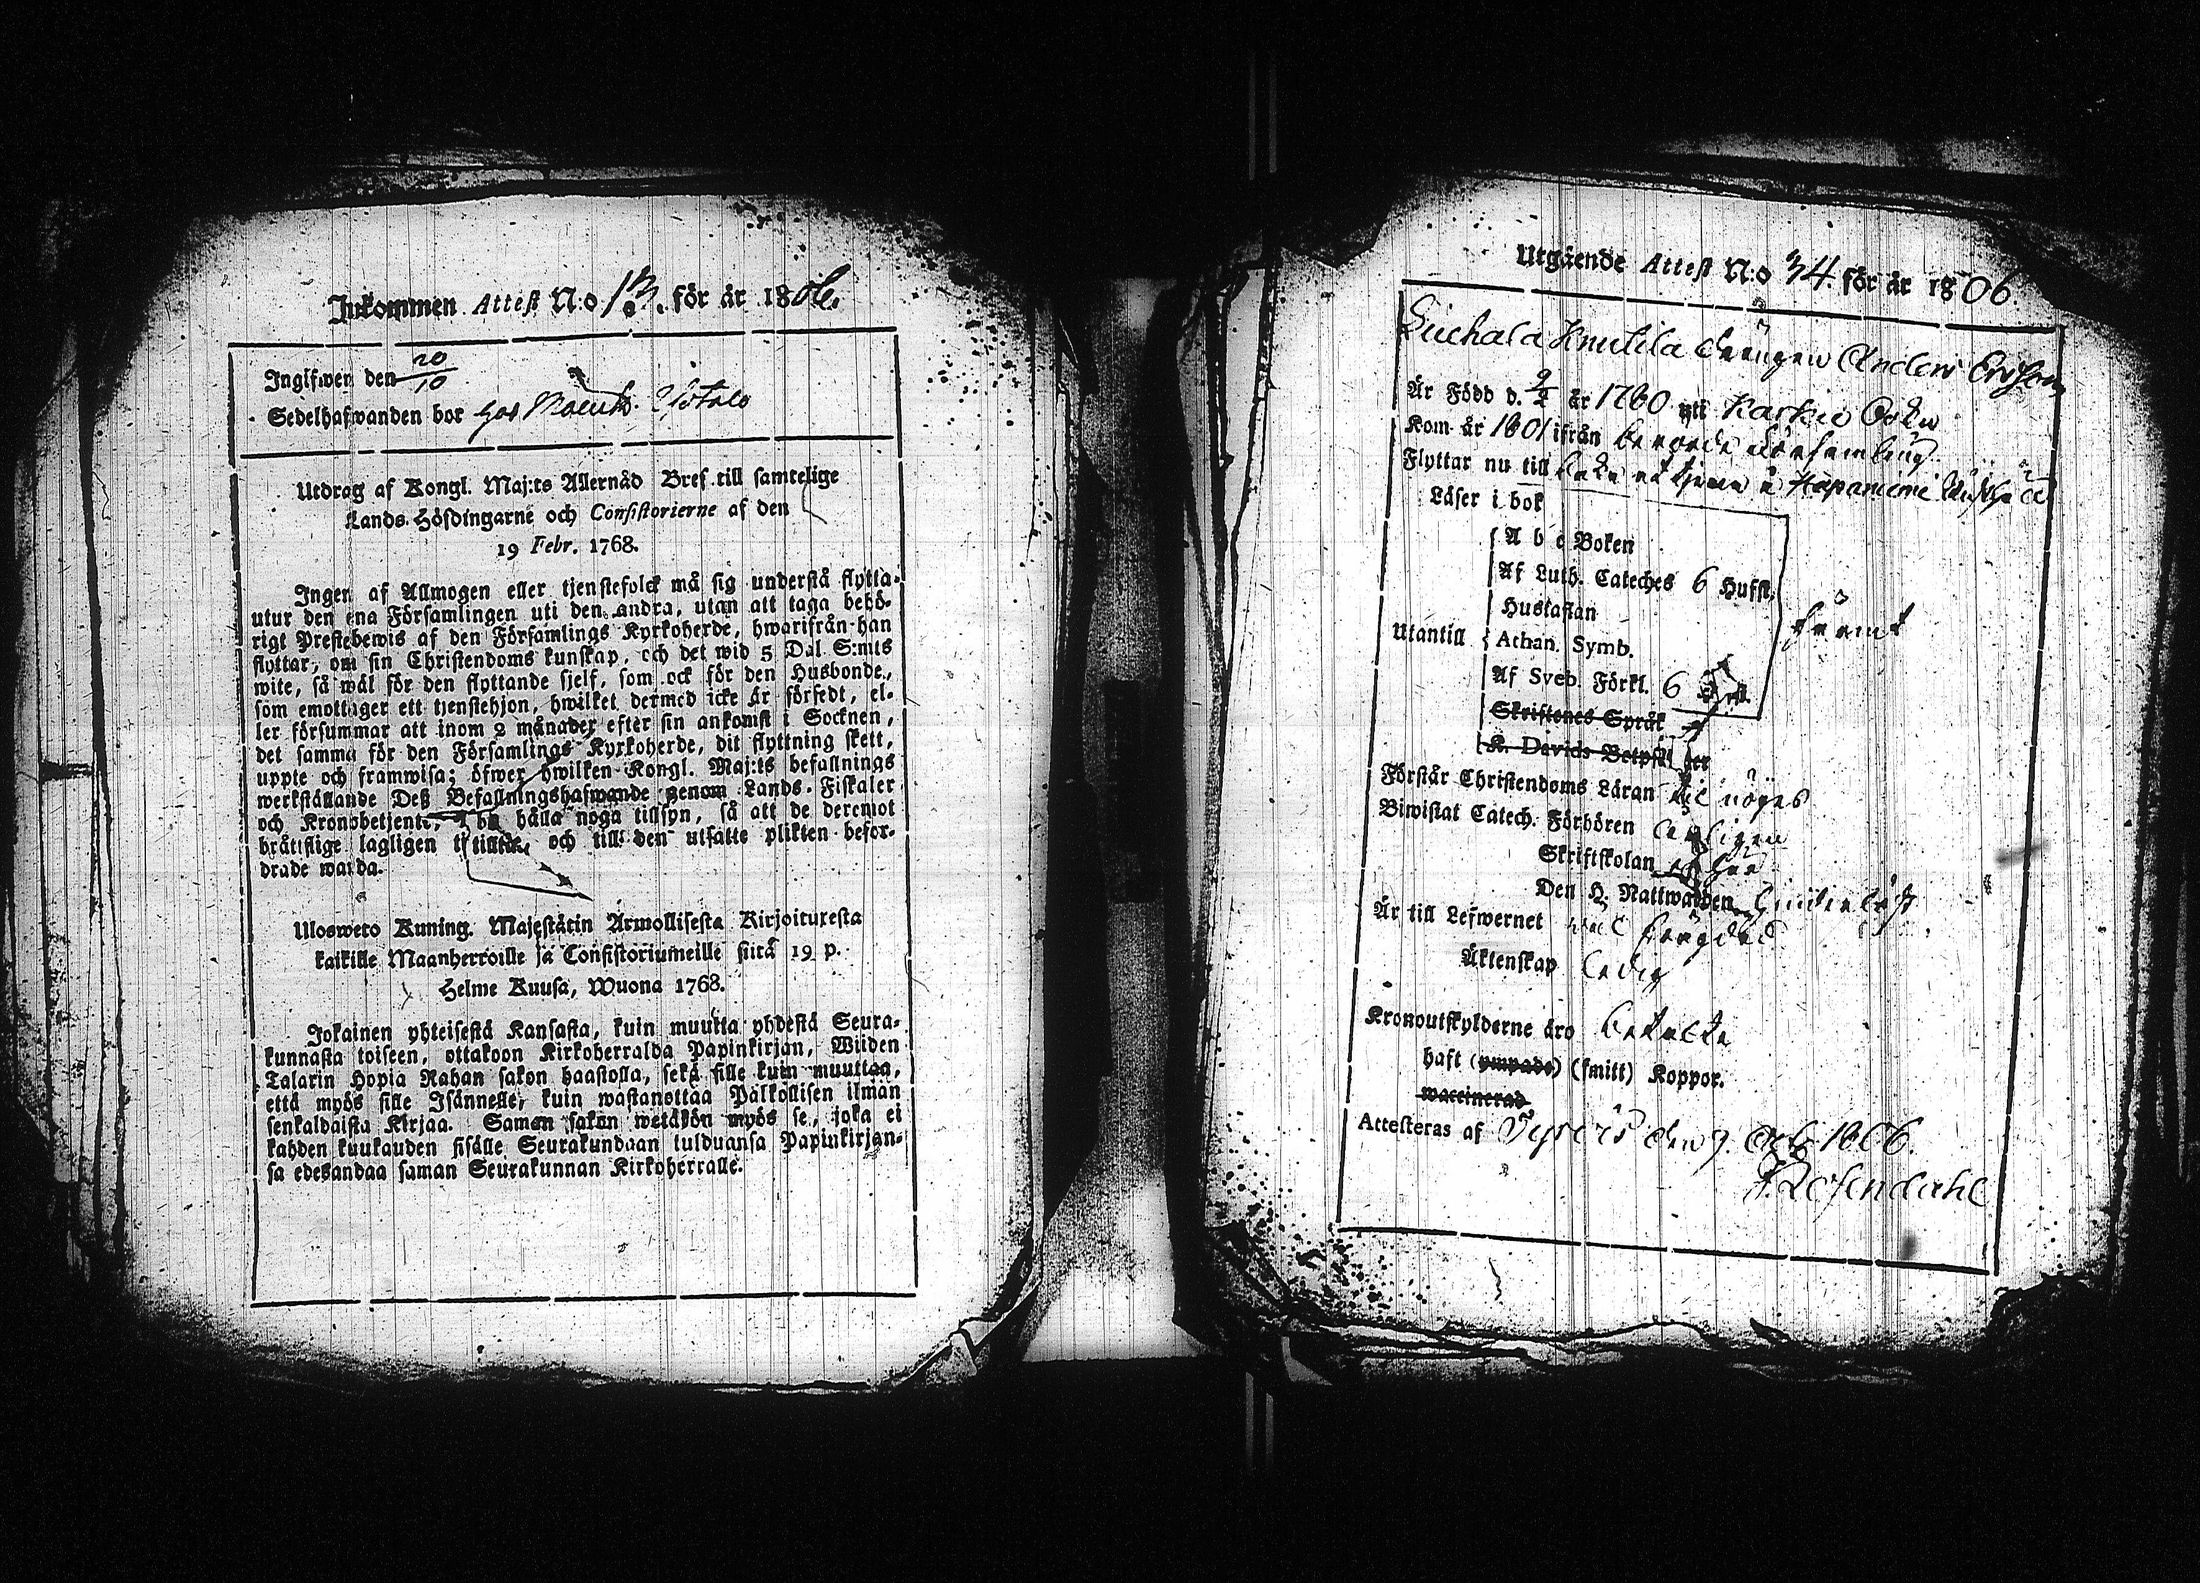 Inkommen Attest N:o 13. för år 1806.
Ingifwen den 20/10
Sedelhafwanden bor hos
Utdrag af Kongl. Maj:ts Allernåd Bref till samtelige
Lands-Höfdingarne och Consistorierne af den
19 Febr. 1768.
Ingen af Allmogen eller tjenstefolck må sig understå flytta
utur den ena Församlingen uti den andra, utan att taga behö-
rigt Prestebewis af den Församlings Kyrkoherde, hwarifrån han
flyttar, om sin Christendoms kunskap, och det wid 5 Dal. S:mts
wite, så wäl för den flyttande sjelf, som ock för den Husbonde,
som emottager ett tjenstehjon, hwilket dermed icke är försedt, el-
ler försummar att inom 2 månader efter sin ankomst i Socknen,
det samma för den Församlings Kyrkoherde, dit flyttning skett,
uppte och framwisa; öfwer hwilken Kongl. Maj:ts befallnings
werkställande Deß Befallningshafwande genom Lands-Fiskaler
och Kronobetjente, bö hålla noga tillsyn, så att de deremot
bråttslige lagligen tilltalte och till den utsatte plikten befor-
drade warda.
Uloswето Kuning. Majestätin Armollisesta Kirjoituxesta
kaikille Maanherroille ja Consistoriumeille siitä 19 p.
Helme Kuusa, Wuona 1768.
Jokainen yhteisestä Kansasta, kuin muutta yhdestä Seura-
kunnasta toiseen, ottakoon Kirkoherralda Papinkirjan, Wiiden
Talarin Hopia Rahan sakon haastolla, sekä sille kuin muuttaa,
että myös sille Isännelle, kuin wastanottaa Palkollisen ilman
senkaldaista Kirjaa. Saman sakon wetäkön myös se, joka ei
kahden kuukauden sisälle Seurakundaan tulduansa Papinkirjan-
sa edesandaa saman Seurakunnan Kirkoherralle.
Utgående Attest N:o 34. för år 1806.
Knutila drängen Anders Ersson
Är Född d. 9/2 år 1780 uti Karkio Socken
Kom år 1801 ifrån berörde Församling
Flyttar nu till
Läser i bok
A b c Boken
Af Luth. Cateches 6 Hufst.
Hustaflan
Utantill Athan. Symb.
Af Sveb. Förkl. 6
främt
Skriftenes Språk
K. Davids Botpsal
Förstår Christendoms Läran till nöjes
Biwistat Catech. Förhören
Skriftskolan
Den H. Nattwarden
Är till Lefwernet
Äktenskap ledig
Kronoutskylderne äro betalte
haft (ympade) (smitt) Koppor.
waccinerad
Attesteras af Tyrvis den 9. Octb. 1806.
Rosendahl